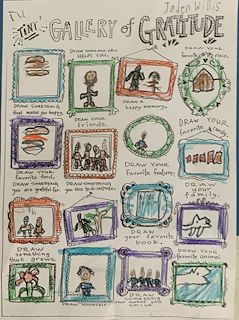 Jaden Willis
Tiny GALLERY of GRATITUDE
DRAW someone who HELPS YOU.
DRAW YOUR favorite place.
DRAW SOMETHING that makes you happy.
DRAW a happy memory.
DRAW YOUR friends.
DRAW YOUR favorite candy.
DRAW YOUR favorite food.
DRAW YOUR favorite feature.
DRAW SOMETHING you are grateful for.
DRAW SOMETHING you like to do outside.
DRAW your family.
DRAW your favorite book.
DRAW something that grows.
DRAW YOUR favorite animal.
DRAW YOURSELF
DRAW something that makes you